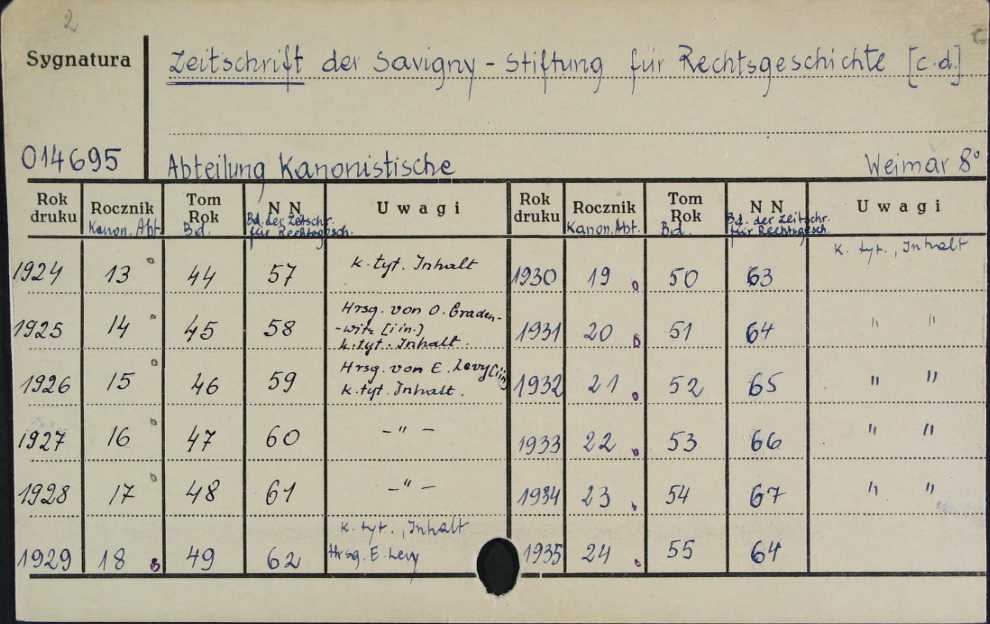 2
Sygnatura
Zeitschrift der Savigny - Stiftung für Rechtsgeschichte [c.d.]
014695
Abteilung Kanonistische
Weimar 8°
Rok druku Rocznik Kanon. Abt. Tom Rok Bd. N N Bd. der Zeitschr. für Rechtsgesch. Uwagi Rok druku Rocznik Kanon. Abt. Tom Rok Bd. N N Bd. der Zeitschr. für Rechtsgesch. Uwagi
1924 13 44 57 k. tyt. Inhalt 1930 19 50 63 k. tyt., Inhalt
1925 14 45 58 Hrsg. von O. Graden-
-witz [i in.]
k. tyt. Inhalt. 1931 20 51 64 " "
1926 15 46 59 Hrsg. von E. Levy [i in]
k. tyt. Inhalt. 1932 21 52 65 " "
1927 16 47 60 - " - 1933 22 53 66 " "
1928 17 48 61 - " - 1934 23 54 67 " "
1929 18 49 62 k. tyt., Inhalt
Hrsg. E. Levy 1935 24 55 64